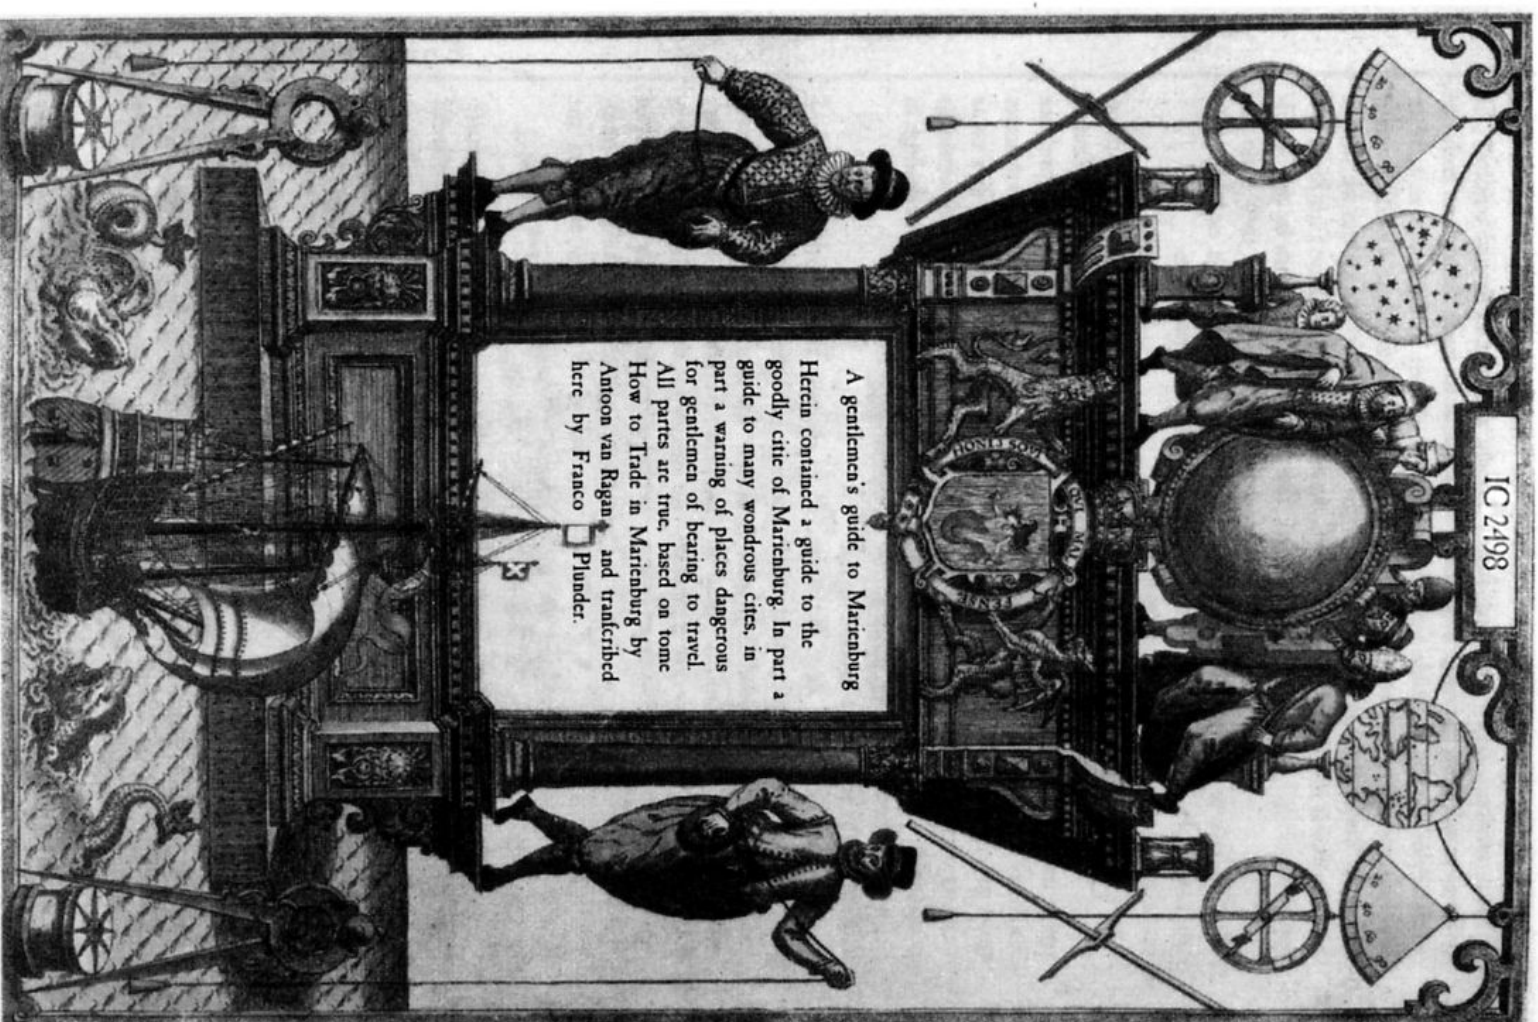 IC 2498
HONI SOIT
QUI MAL
Y PENSE
A gentlemen's guide to Marienburg
Herein contained a guide to the
goodly citie of Marienburg. In part a
guide to many wondrous cites, in
part a warning of places dangerous
for gentlemen of bearing to travel.
All partes are true, based on tome
How to Trade in Marienburg by
Antoon van Ragan and tranſcribed
here by Franco Plunder.
20 40 60 80
20 40 60 80